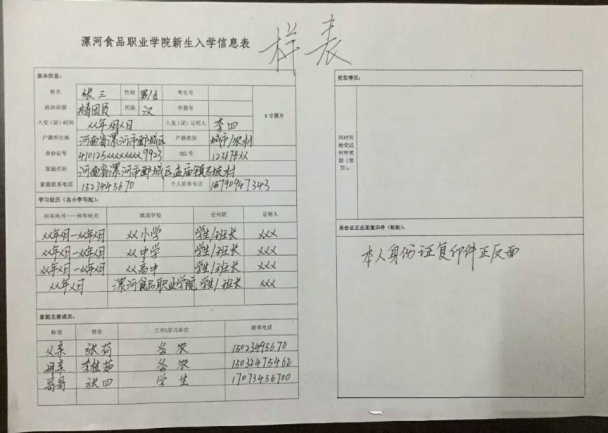 漯河食品职业学院新生入学信息表 样表
基本信息：
姓名 张三 性别 男/女 考生号
政治面貌 精团员 民族 汉 学籍号 1寸照片
入党（团）时间 XX年X月X日 入党（团）证明人 李四
户籍所在地 河南省漯河市郾城区 户籍类别 城市/农村
身份证号 410125xxxxxxxx9923 QQ号
家庭住址
家庭联系电话 个人联系电话
学习经历（自小学写起）：
何年何月——何年何月 就读学校 任何职 证明人
XX年X月-XX年X月 XX小学 学生/班长 XXX
XX年X月-XX年X月 XX中学 学生/班长 XXX
XX年X月-XX年X月 XX高中 学生/班长 XXX
XX年X月 漯河食品职业学院 学生/班长 XXX
家庭主要成员：
称谓 姓名 工作\学习单位 联系电话
父亲 务农
母亲 务农
哥哥 张四 学生
奖惩情况：
何时何
地受过
何种奖
励（惩
罚）：
身份证正反面复印件（粘贴）：
本人身份证复印件正反面